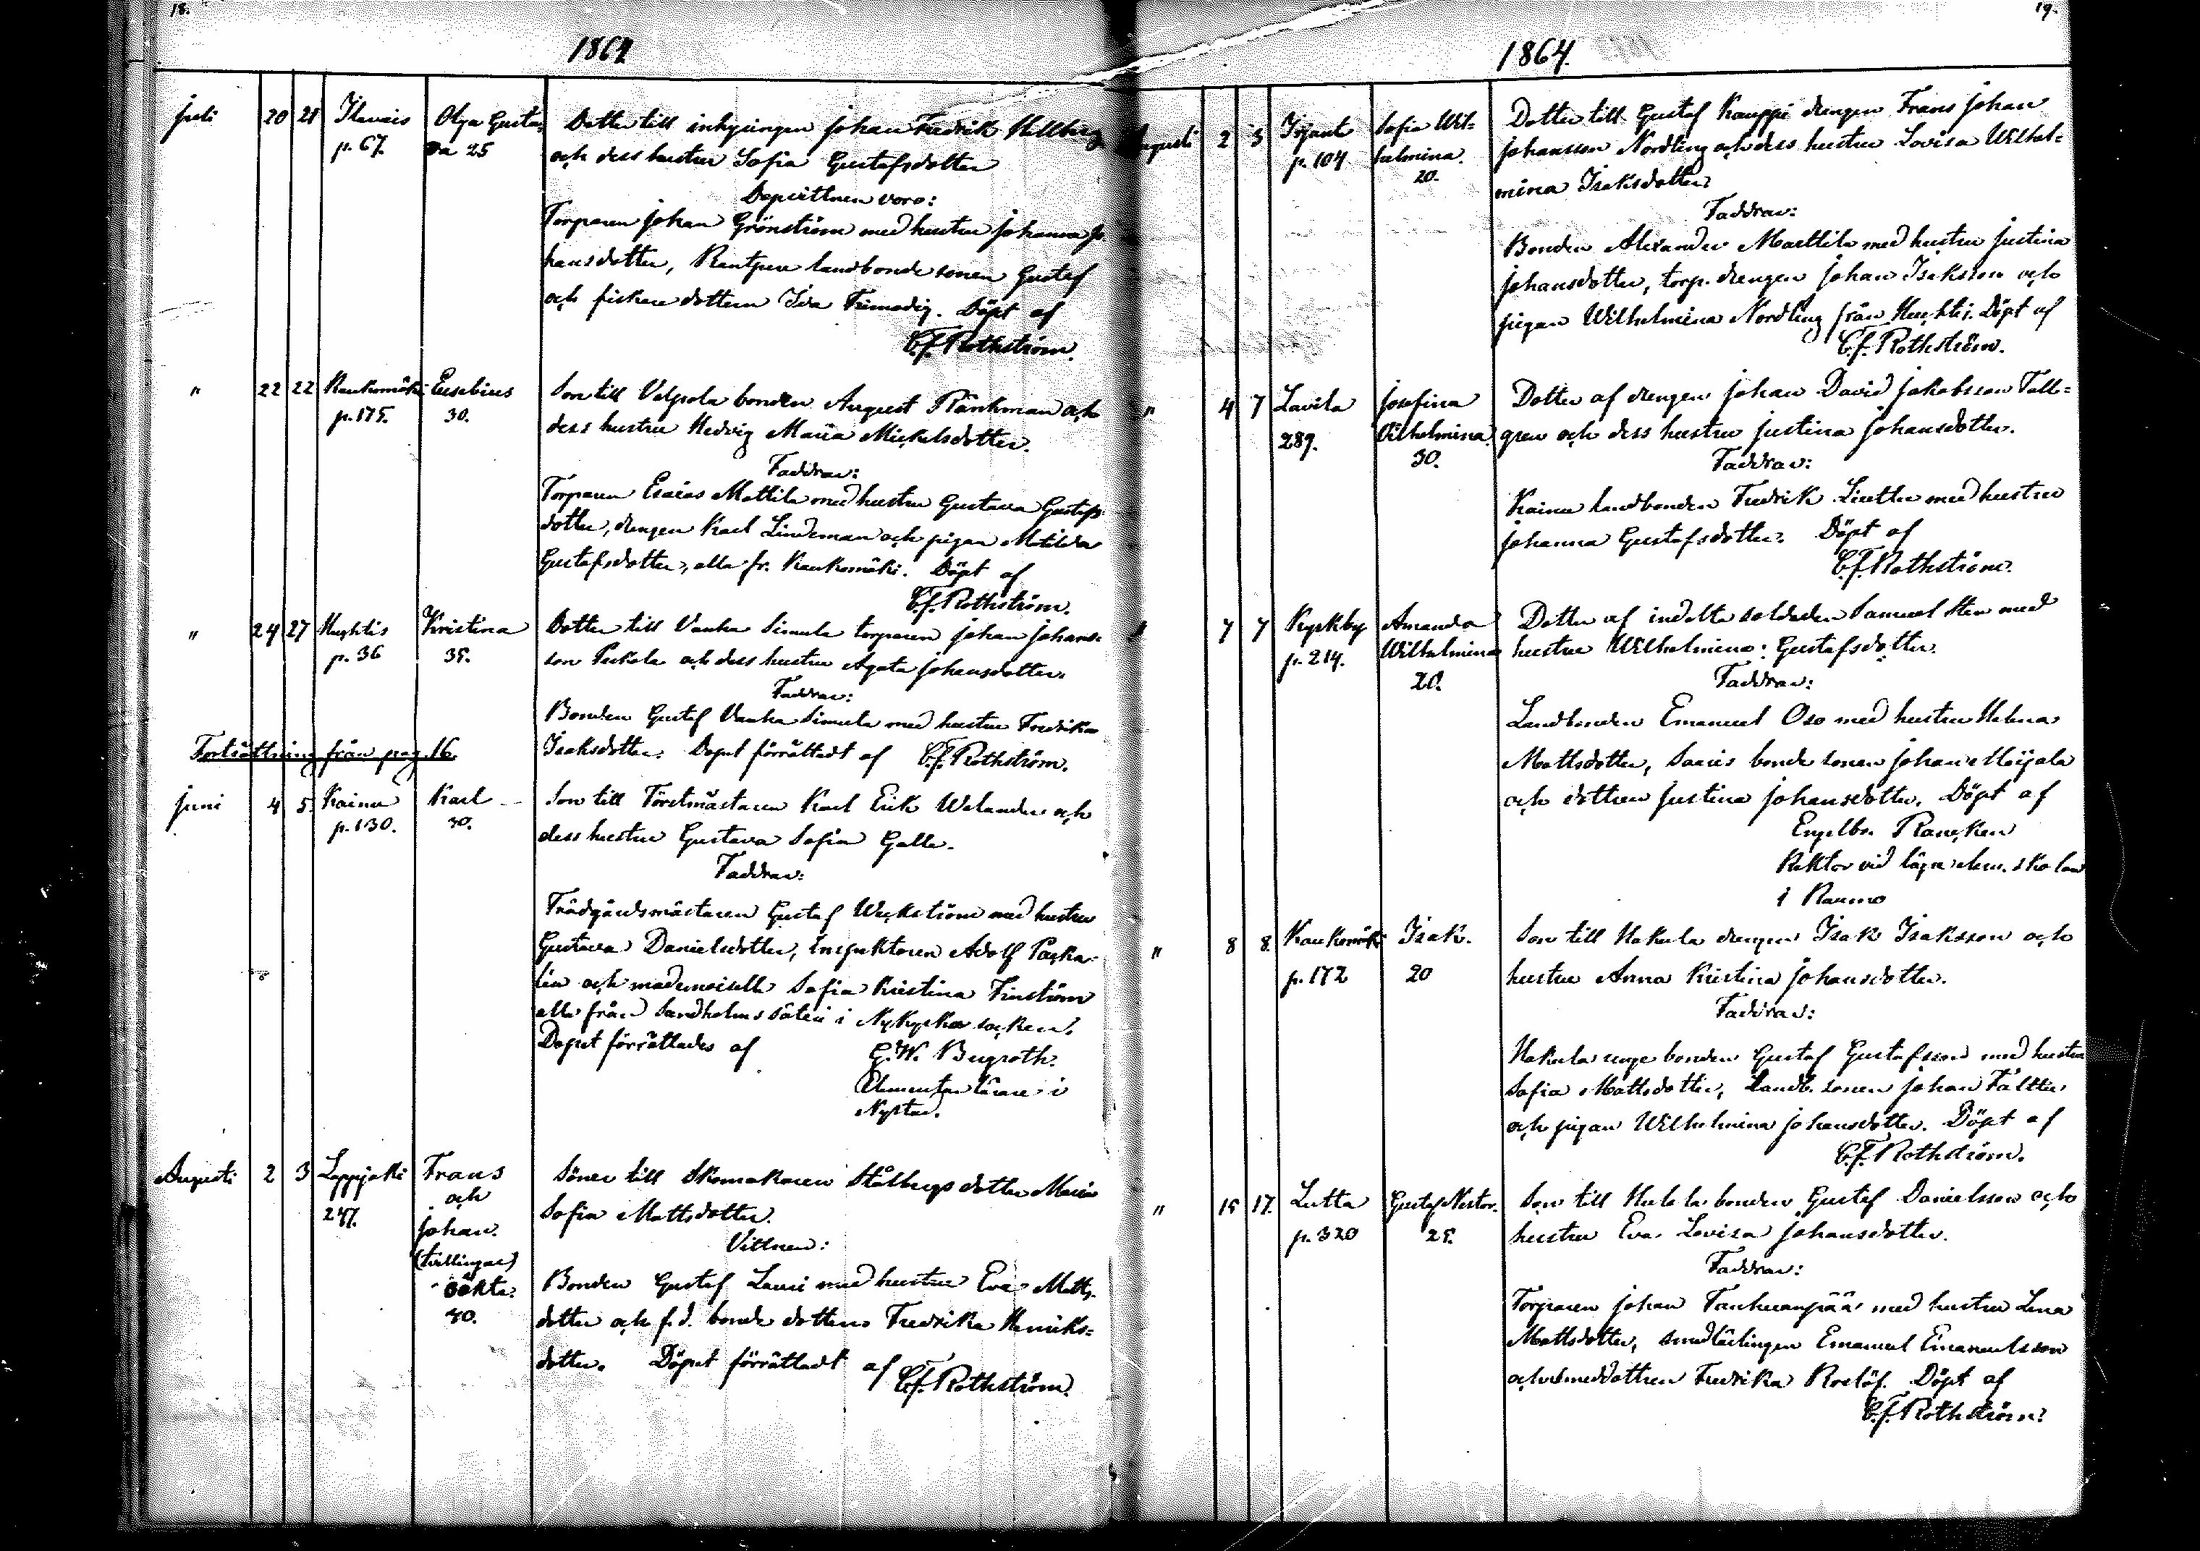 18.
1864
juli 20 21 Ilavais Olga Gusta- Dotter till inhysingen Johan Fredrik Hellberg
p. 67. va 25 och dess hustru Sofia Gustafsdotter
Dopvittnen voro:
Torparen Johan Grönström med hustru Johanna Jo
hansdotter, Rantpere landbonde sonen Gustaf
och fiskare dottern Ida Frimodig. Döpt af
C.f. Rothström.
" 22 22 Kaukomäki Eusebius Son till Velpola bonden August Ränkman och
p. 175. 30. dess hustru Hedvig Maria Mickelsdotter.
Faddrar:
Torparen Esaias Mattila med hustru Gustava Gustafs
dotter, drengen Karl Lindeman och pigan Matilda
Gustafsdotter, alla fr. Kaukomäki. Döpt af
C.f. Rothström.
" 24 27 Kristina Dotter till Vanha Simula torparen Johan Johans-
p. 36 35. son och dess hustru Agata Johansdotter.
Faddrar:
Bonden Gustaf Vanha Simula med hustru Fredrika
Isaksdotter. Dopet förrättadt af C.f. Rothström.
Fortsättning från pag. 16.
juni 4 5. Kainu Karl Son till Förstmästaren Karl Erik Welander och
p. 130. 30. dess hustru Gustava Sofia Galle.
Faddrar:
Trädgårdsmästaren Gustaf Weckström med hustru
Gustava Danielsdotter, Inspektoren Adolf
och mademoiselle Sofia Kristina Finström
alla från Sandholms säteri i Nykyrko socken.
Dopet förrättades af G.W. Bergroth.
Elementar lärare i
Nystad.
Augusti 2 3 Lappjoki Frans Söner till Skomakaren Stålbergs dotter Maria
247. och Sofia Mattsdotter.
Johan. Vittnen:
(tvillingar)
oäkta. Bonden Gustaf Lauri med hustru Eva Matts-
30. dotter och f.d. bonde dottern Fredrika Henriks-
dotter. Döpet förrättadt af C.f. Rothström.
19.
1864.
Augusti 2 3 Irjant Sofia Wil- Dotter till Gustaf Kauppi drengen Frans Johan
p. 104 helmina. Johansson Nordling och dess hustru Lovisa Wilhel-
20. mina Isaksdotter.
Faddrar:
Bonden Alexander Marttila med hustru Justina
Johansdotter, torp. drengen Johan Isaksson och
pigan Wilhelmina Nordling från Huhtis. Döpt af
C.f. Rothström.
" 4 7 Lavila Josefina Dotter af drengen Johan David Jakobsson Tall-
289. Wilhelmina gren och dess hustru Justina Johansdotter.
30. Faddrar:
Kainu landbonden Fredrik med hustru
Johanna Gustafsdotter. Döpt af
C.f. Rothström.
" 7 7 Kyrkby Amanda Dotter af indelta soldaten Samuel Sten med
p. 214. Wilhelmina hustru Wilhelmina Gustafsdotter.
20. Faddrar:
Landbonden Emanuel Oso med hustru Helena
Mattsdotter, bonde sonen Johan Höijala
och dottren Justina Johansdotter. Döpt af
Engelbr. Rancken
Rektor vid lägre elem. skolan
i Raumo
" 8 8 Kaukomäki Isak. Son till Hakula drengen Isak Isaksson och
p. 172 20 hustru Anna Kristina Johansdotter.
Faddrar:
Hakula unge bonden Gustaf Gustafsson med hustru
Sofia Mattsdotter, Landb. sonen Johan Fältter
och pigan Wilhelmina Johansdotter. Döpt af
C.f. Rothström.
" 15 17. Lutta Gustaf Nestor. Son till bonden Gustaf Danielsson och
p. 320 25. hustru Eva Lovisa Johansdotter.
Faddrar:
Torparen Johan Tanhuanpää med hustru Lena
Mattsdotter, smedlärlingen Emanuel Emanuelsson
och smeddottren Fredrika Roslöf. Döpt af
C.f. Rothström.